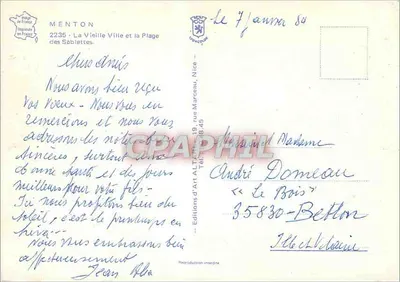 MENTON
2235 - La Vieille Ville et la Plage
des Sablettes
Le 7 Janvier 84
Chers Amis
Nous avons bien reçu
vos voeux - Nous vous en
remercions et nous vous
adressons les nôtres
sincères, surtout une
bonne santé et des jours
meilleurs pour votre fils -
Ici nous profitons bien du
soleil, c'est le printemps en
hiver --
Nous vous embrassons bien
affectueusement
Jean
Monsieur et Madame
André Domeau
"Le Bois"
35830 - Betton
Ille et Vilaine
- Editions d'Art
19, rue Marceau, Nice -
CPARPHIL